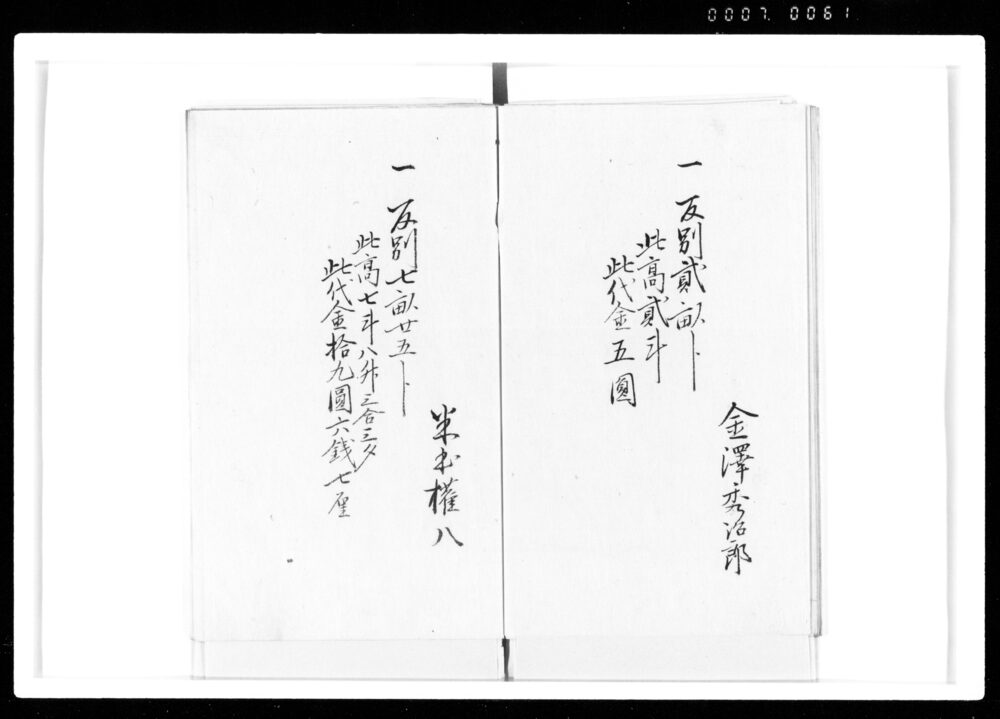 0007 0061
金澤秀治郎
一 反別貳畝卜
此高貳斗
此代金五圓
權八
一 反別七畝廿五卜
此高七斗八升三合三夕
此代金拾九圓六銭七厘